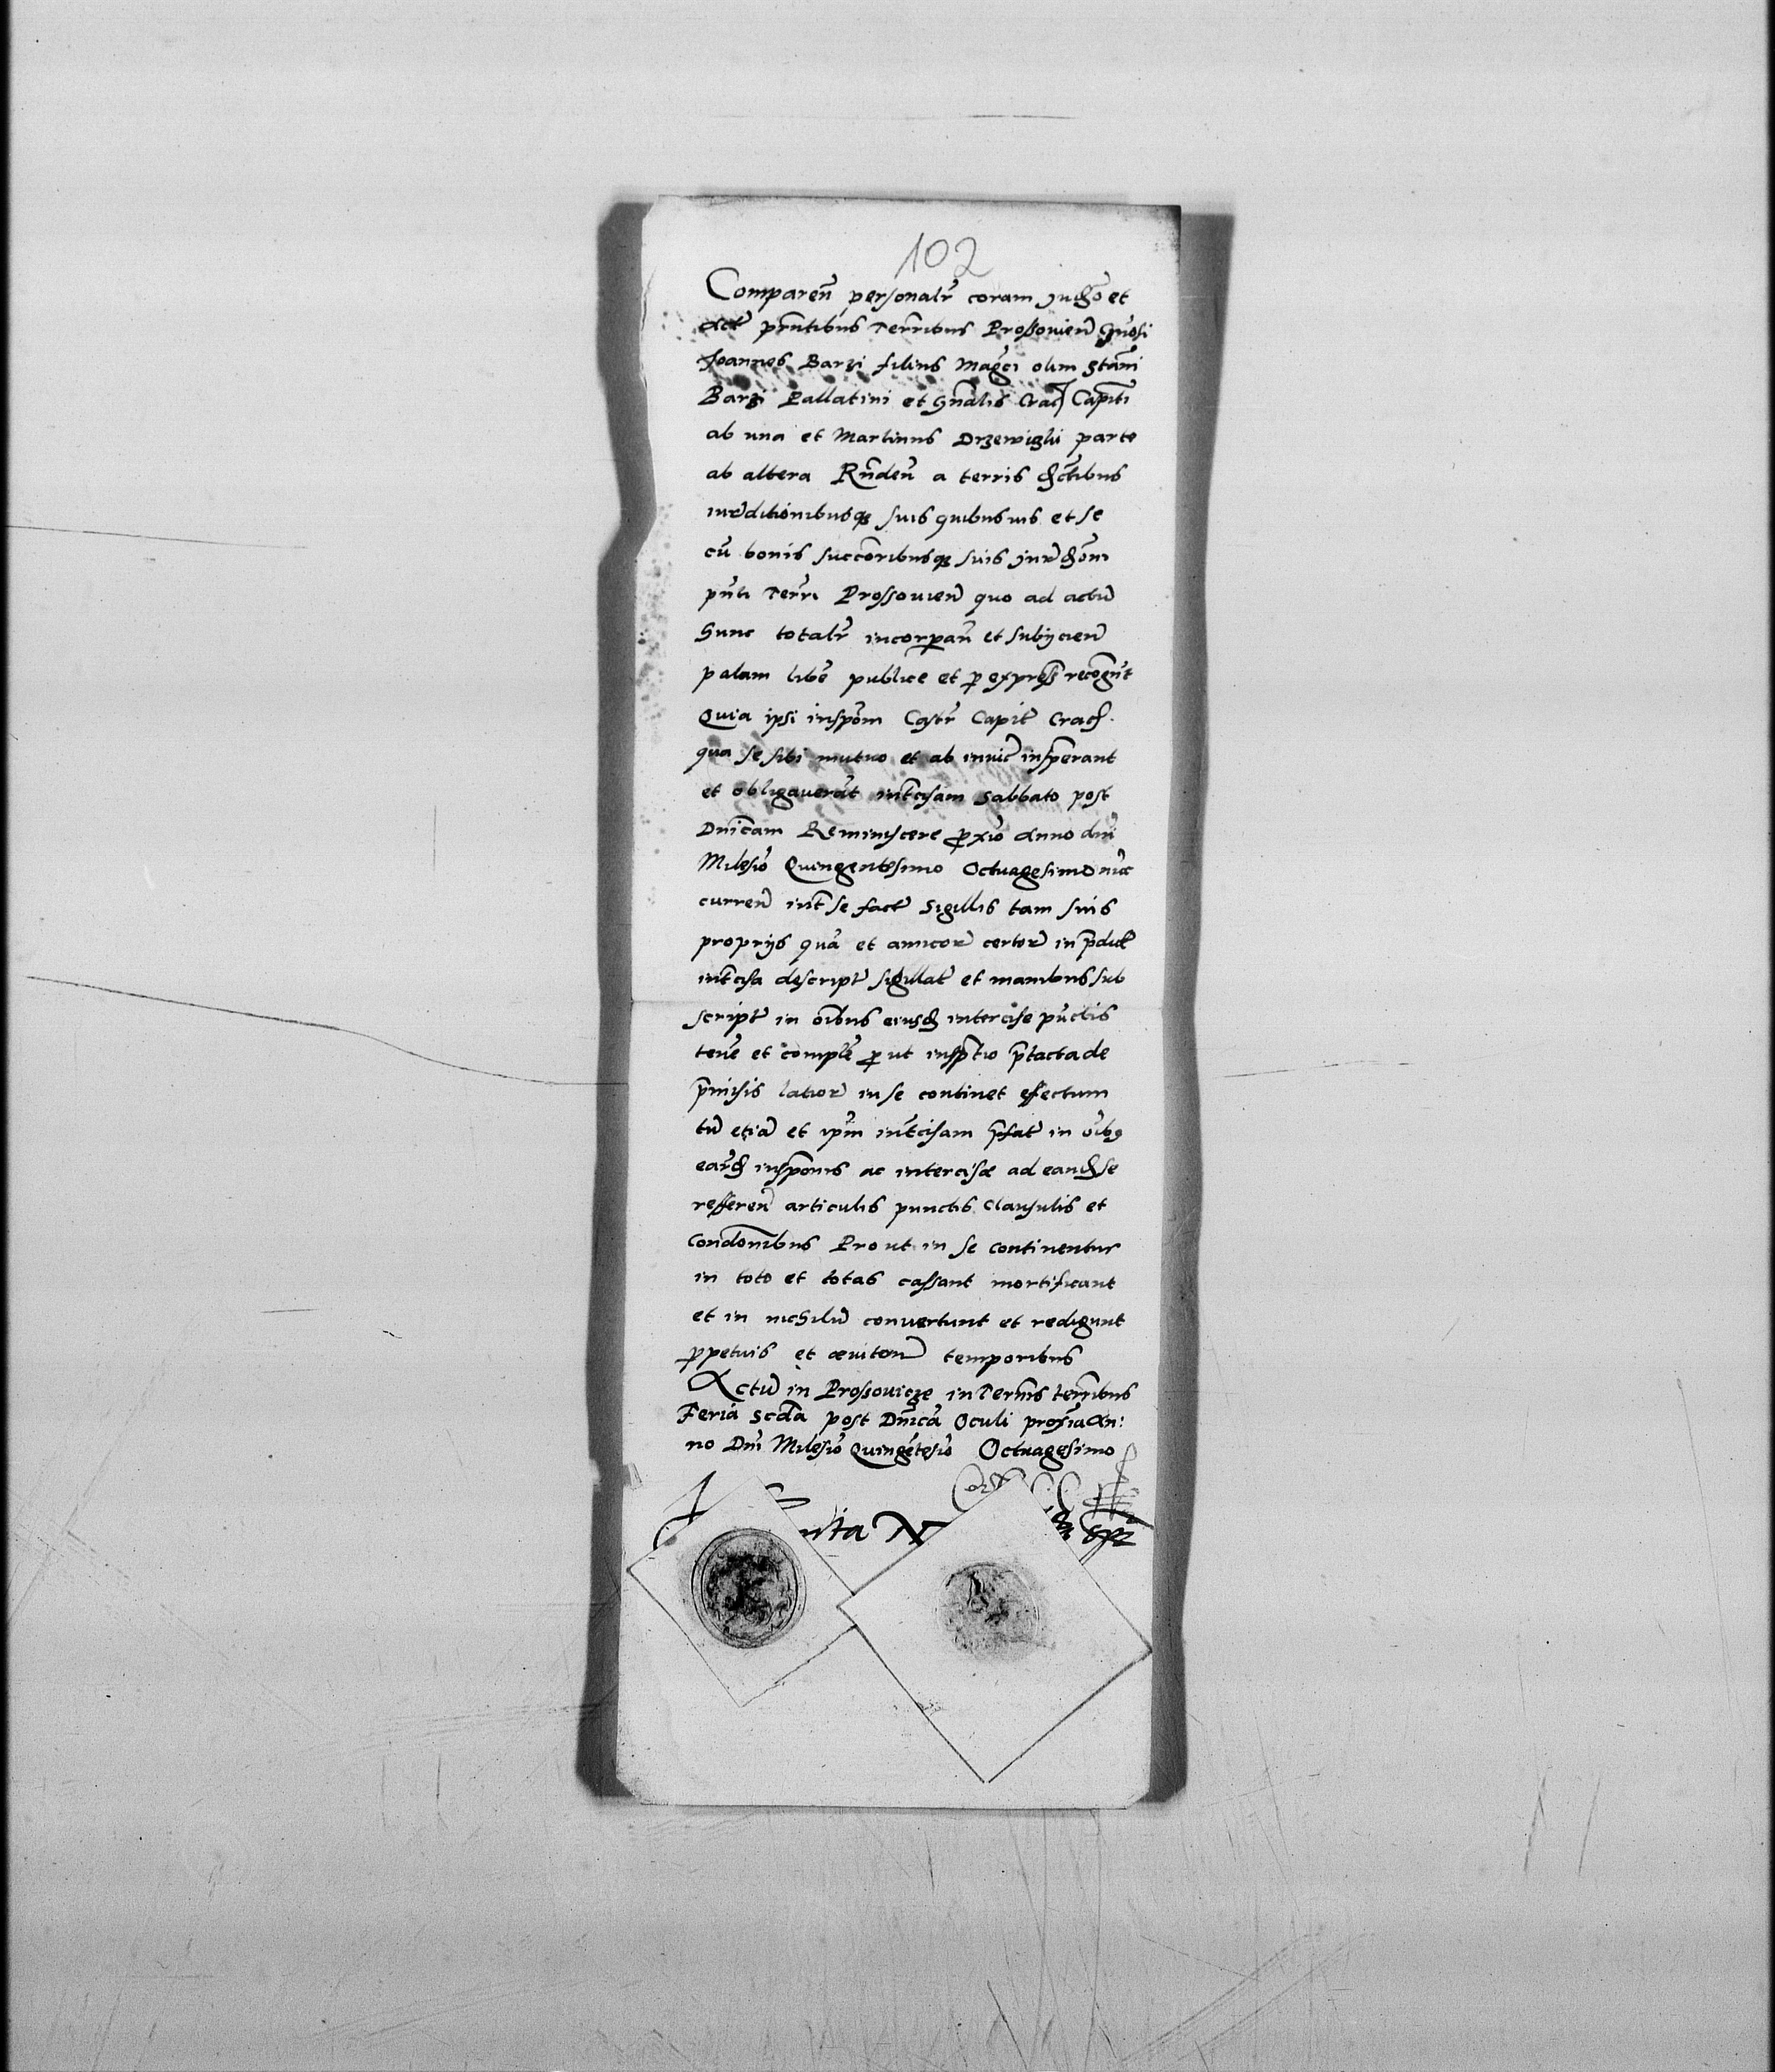 102
Comparen̄ personalr̄ coram Judō et
Actʳ prn̄tibus Terr̄ibus Prossovien̄ Gn̄osi
Joannes Barzi filius Mag̃ci olim Stan̄i
Barzi Pallatini et Gn̄alis Crac̄ Capn̄ti
ab una et Martinus Drzewiczki parte
ab altera Rn̄den̄ a terris dc̄tibus
iur̄ditionibusq̨ suis quibusvis et se
cū bonis succōribusq̨ suis Jur̄dōni
pn̄ti Terr̄i Prossovien̄ quo ad actū
hunc totalr̄ incorp̱an̄ et subÿcien̄
palam libē publice et p̱ express̄ recogn̄t
Quia ipsi inscp̄om Castr̄ Capit̄ Crac̄.
qua se sibi mutuo et ab invic̄ inscp̄serant
et obligaverāt int̄cisam Sabbato post
Dn̄icam Reminiscere p̱xio Anno dni
Milesio Quingentesimo Octuagesimo nūc
curren̄ int̄ se fact̄ Sigillis tam suis
proprÿs quā et amicor̄ certor̄ in p̄dict̄
int̄cisa descript̄ sigillat̄ et manibus sub
script̄ in oībus eiusd̄ intercise pūctis
tenē et complē p̱ ut inscp̄tio p̄tacta de
p̄misis latior̄ in se continet effectum
tū etiā et ipm̄ int̄cisam p̄fat̄ in oīb9
earūd̄ inscp̄onis ac intercisæ ad eand̄ se
refferen̄ articulis punctis Clausulis et
Condōnibus Prout in se continentur
in toto et totas cassant mortificant
et in nichilū convertunt et redigunt
p̱petuis et æviter̄n temporibus
Actū in Prossovicze in Termīs terr̄ibus
Feria Scd̄a post Dn̄icā Oculi proxīa An:
no Dn̄i Milesio Quingētesio Octuagesimo